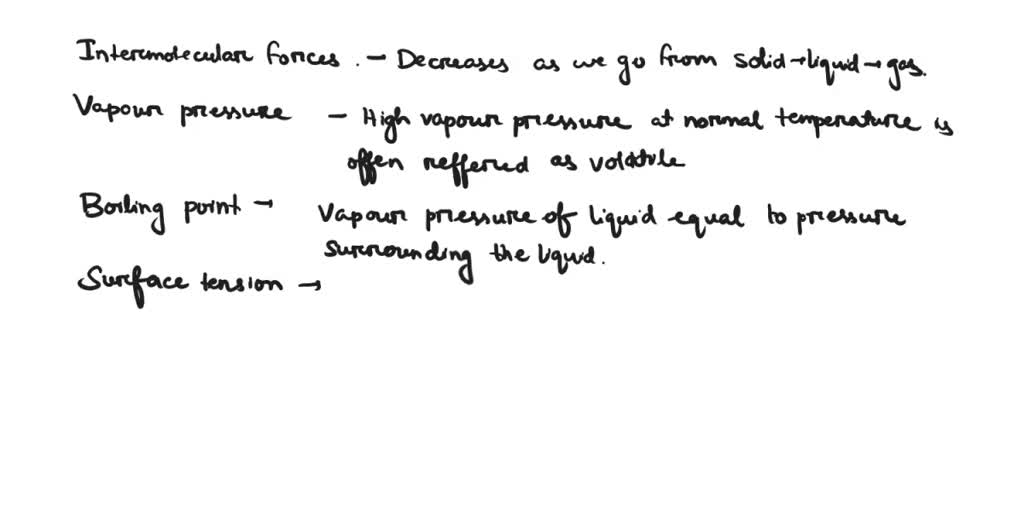 Intermolecular forces. - Decreases as we go from solid→liquid→gas.
Vapour pressure - High vapour pressure at normal temperature is
often reffered as volatile
Boiling point → Vapour pressure of liquid equal to pressure
surrounding the liquid.
Surface tension →